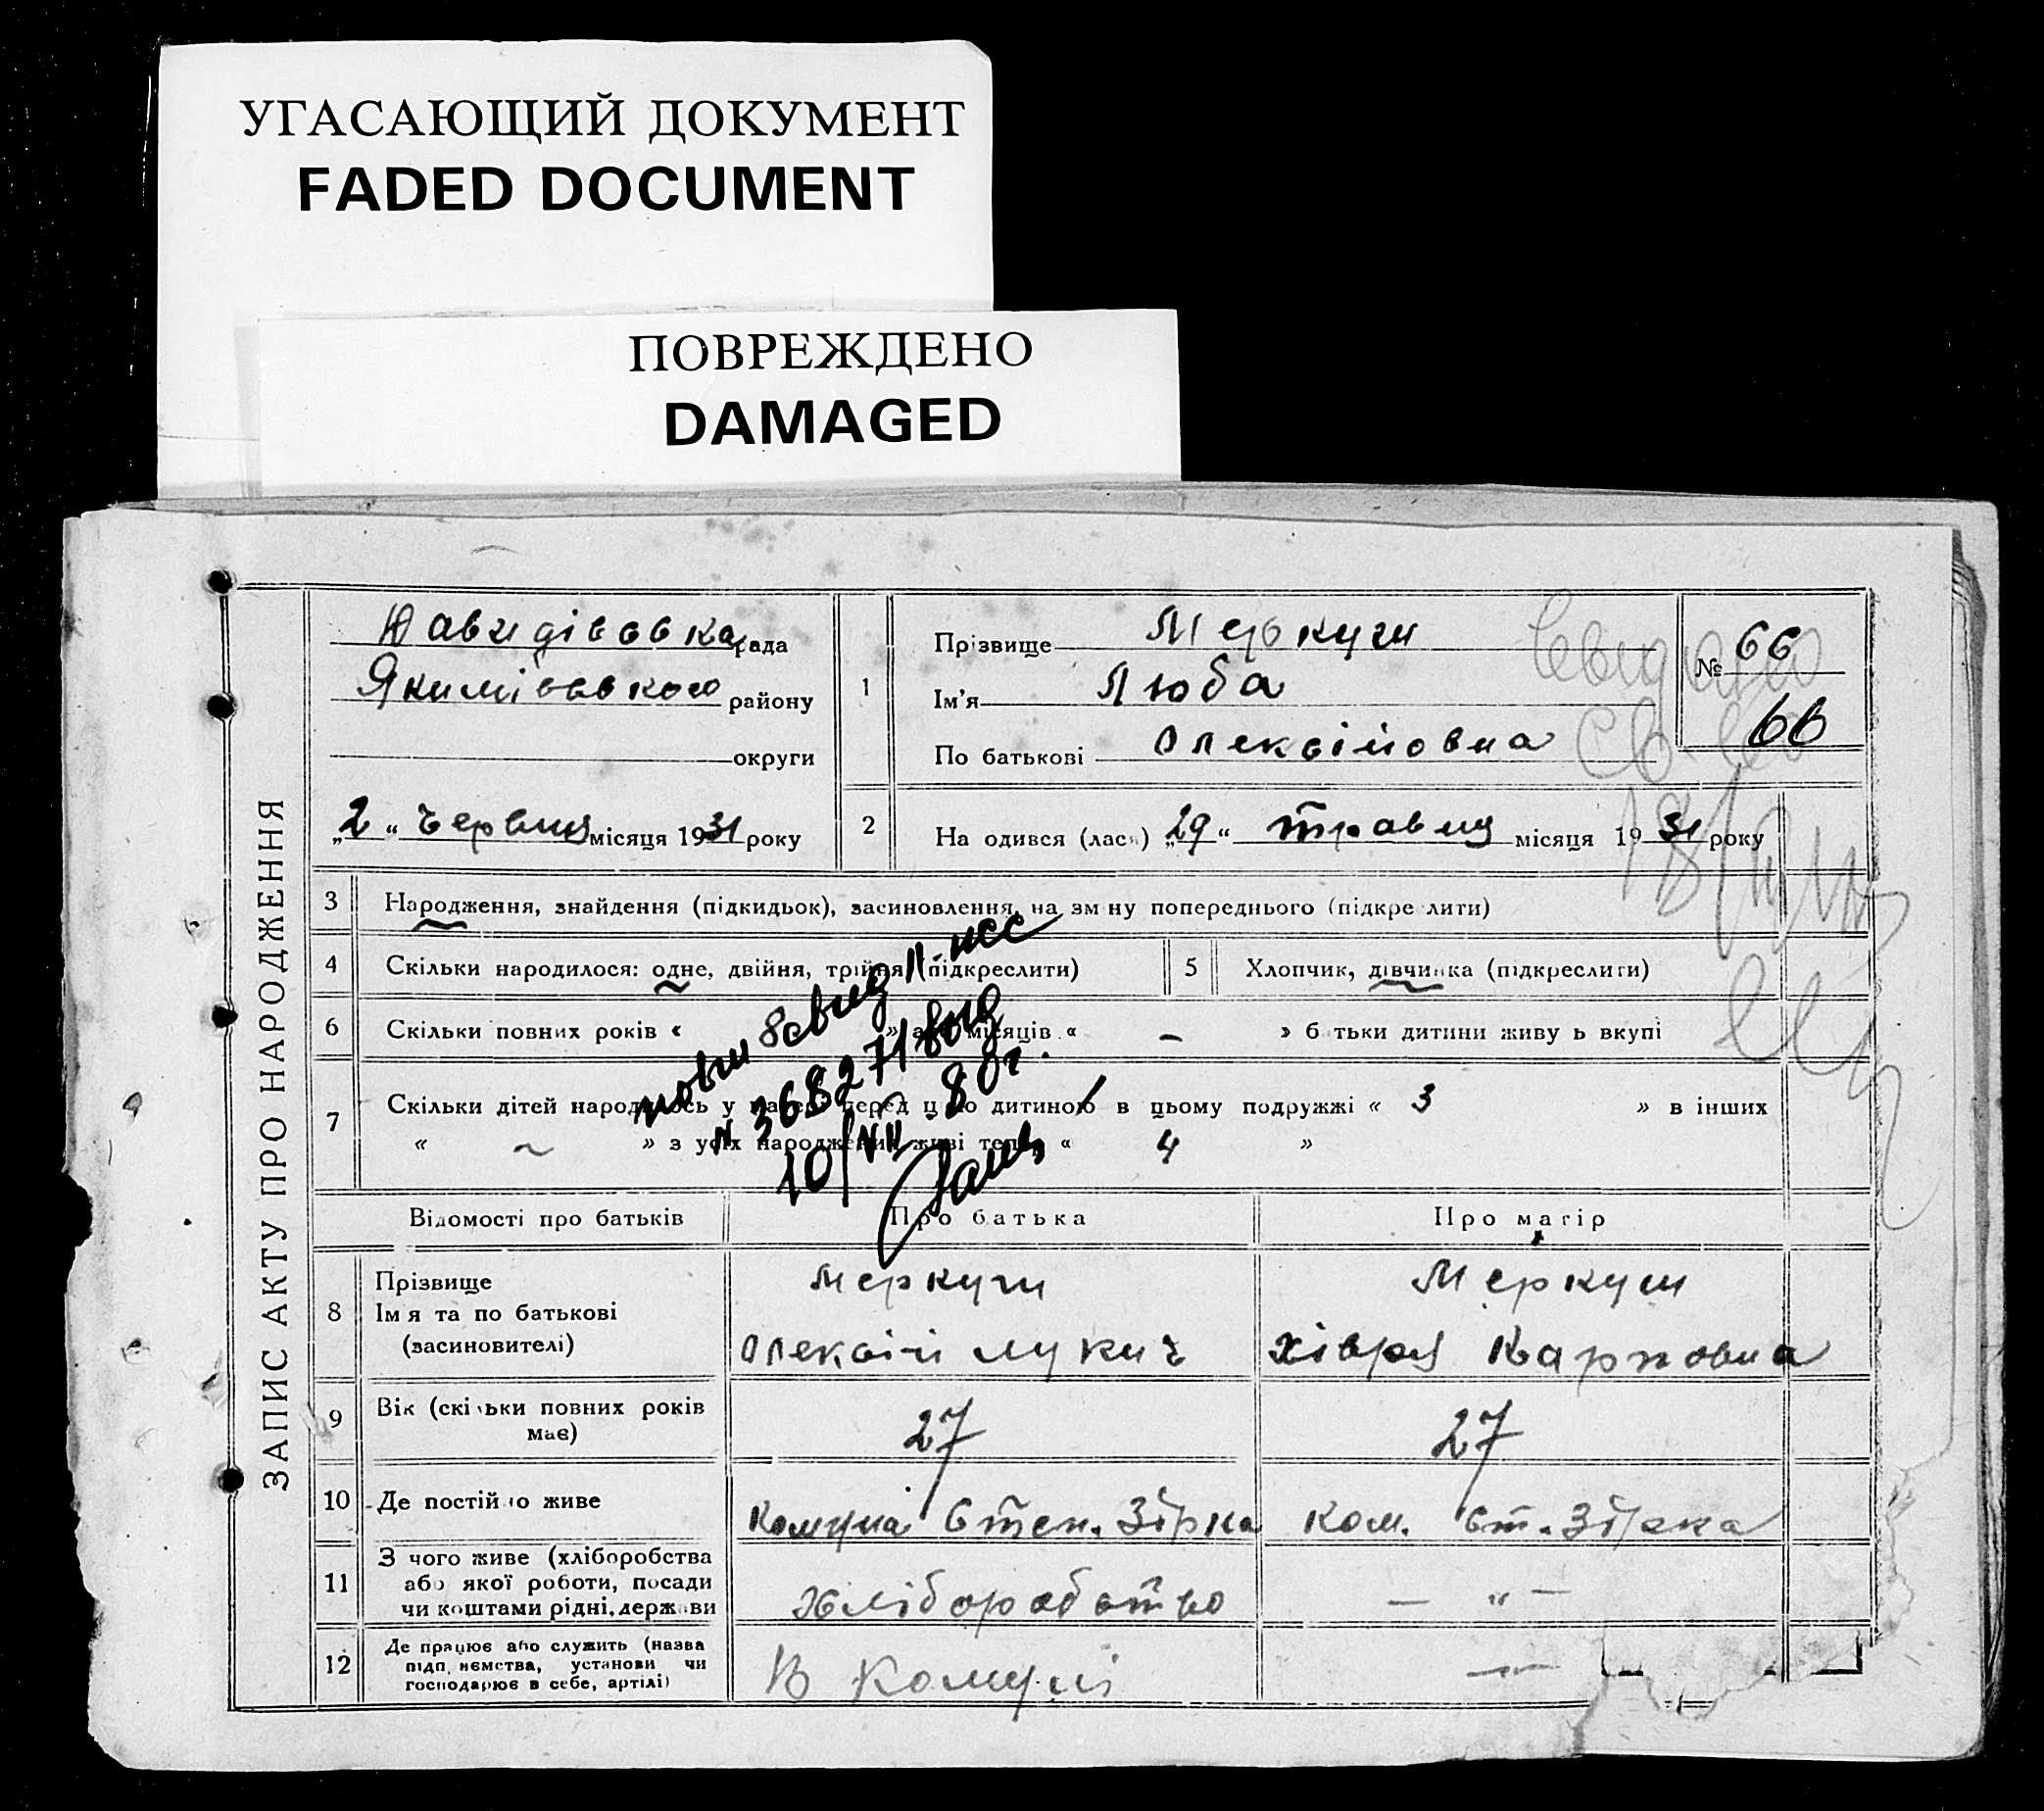 УГАСАЮЩИЙ ДОКУМЕНТ
FADED DOCUMENT
ПОВРЕЖДЕНО
DAMAGED
ЗАПИС АКТУ ПРО НАРОДЖЕННЯ
Давидівська рада
Якимівського району
округи
„2“ червня місяця 1931 року
1
Прізвище Меркуш
Ім'я Люба
По батькові Олексіївна
№ 66
66
2
На одився (лася) „29“ травня місяця 1931 року
3 Народження, знайдення (підкидьок), засиновлення, на зм ну попереднього (підкре лити)
4 Скільки народилося: одне, двійня, трійня (підкреслити)
5 Хлопчик, дівчинка (підкреслити)
6 Скільки повних років « » або місяців « – » б тьки дитини живу ь вкупі
7 Скільки дітей народилось у матері перед цією дитиною в цьому подружжі « 3 » в інших
« ~ » з усіх народжених живі тепер « 4 »
N 368271
10/VII-80г.
Відомості про батьків
Про батька
Про матір
8 Прізвище
Ім я та по батькові
(засиновителі)
Меркуш
Олексій Лукич
Меркуш
Хівря Карповна
9 Вік (скільки повних років має)
27
27
10 Де постійно живе
Комуна Степ. Зірка
Ком. Ст. Зірка
11 З чого живе (хліборобства
або якої роботи, посади
чи коштами рідні, держави
хліборобство
— " —
12 Де працює або служить (назва
підп иємства, установи чи
господарює в себе, артілі)
В комуні
—"—